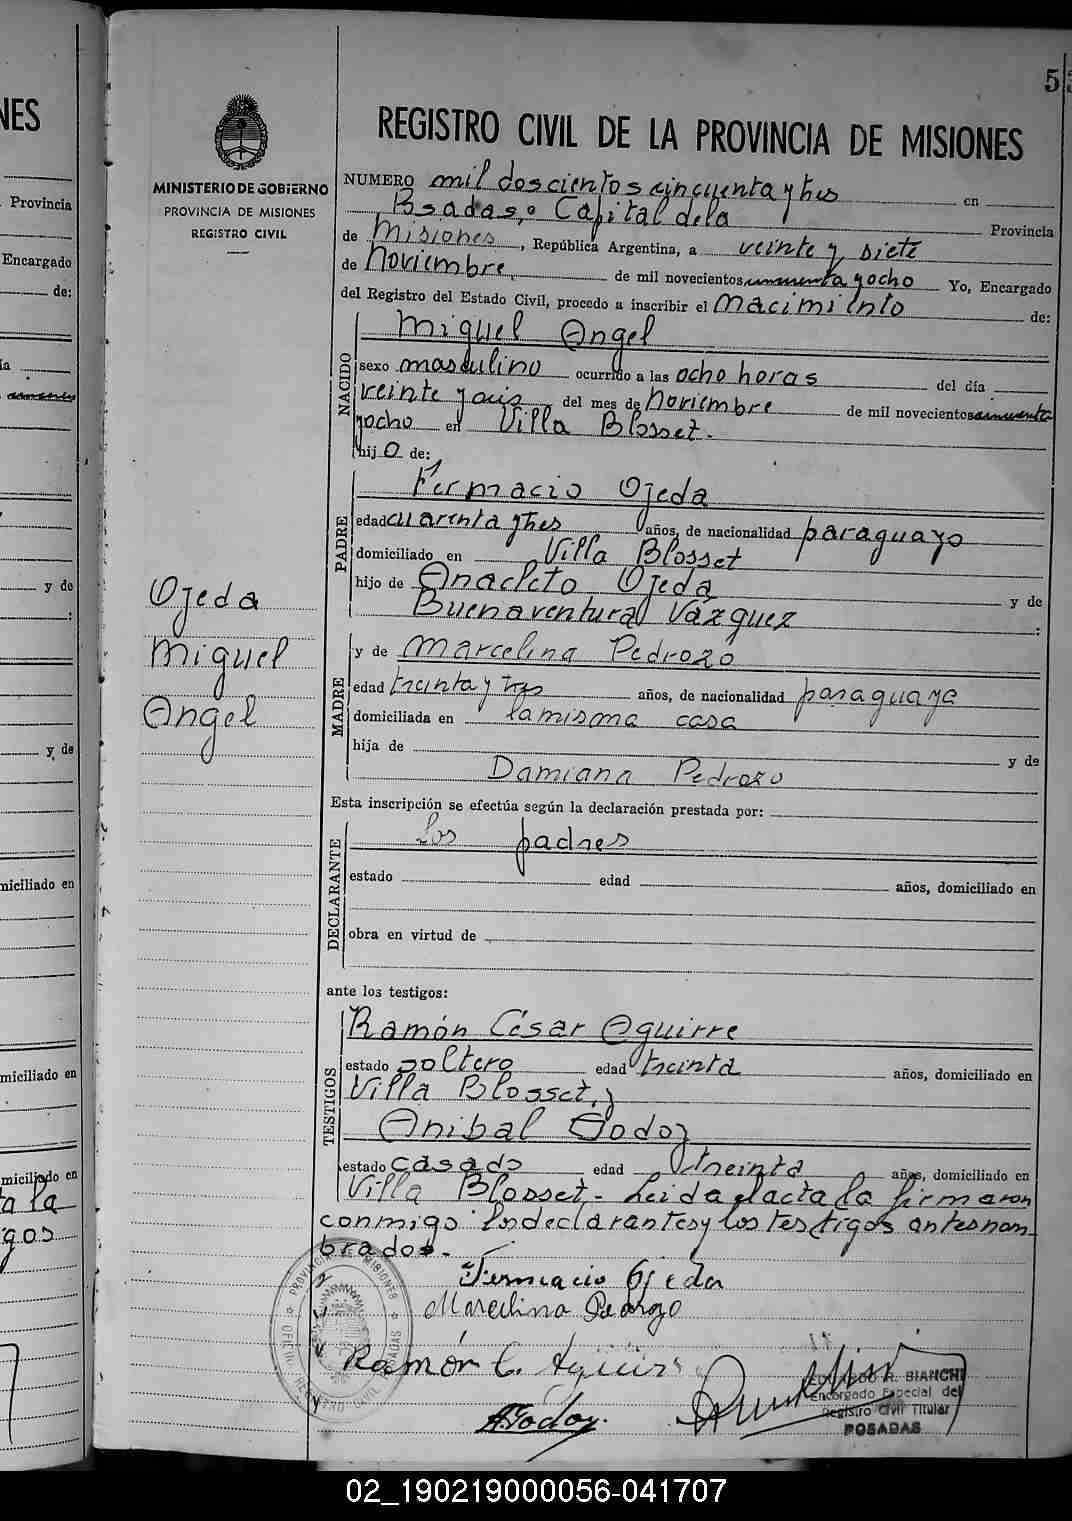 NES
Provincia
Encargado
de:
y de
:
y de
miciliado en
miciliado en
miciliado en
ta la
gos
5
MINISTERIO DE GOBIERNO
PROVINCIA DE MISIONES
REGISTRO CIVIL
Ojeda
Miguel
Angel
REGISTRO CIVIL DE LA PROVINCIA DE MISIONES
NUMERO mil doscientos cincuenta y tres en
Psadas, Capital de la Provincia
de Misiones, República Argentina, a veinte y siete
de Noviembre de mil novecientos cincuenta y ocho Yo, Encargado
del Registro del Estado Civil, procedo a inscribir el Nacimiento de:
NACIDO
Miguel Angel
sexo masculino ocurrido a las ocho horas del día
veinte y seis del mes de Noviembre de mil novecientos cincuenta
y ocho en Villa Blosset.
hij o de:
PADRE
Fermacio Ojeda
edad cuarenta y tres años, de nacionalidad paraguayo
domiciliado en Villa Blosset
hijo de Anacleto Ojeda y de
Buenaventura Vázquez :
MADRE
y de Marcelina Pedrozo
edad treinta y tres años, de nacionalidad paraguaya
domiciliada en la misma casa
hija de y de
Damiana Pedrozo
Esta inscripción se efectúa según la declaración prestada por:
DECLARANTE
Los padres
estado edad años, domiciliado en
obra en virtud de
ante los testigos:
TESTIGOS
Ramón César Aguirre
estado soltero edad treinta años, domiciliado en
Villa Blosset, y
Anibal Godoy
estado casado edad treinta años, domiciliado en
Villa Blosset - Leida el acta la firmaron
conmigo los declarantes y los testigos antes nom
brados.
Fermacio Ojeda
Marcelina Pedrozo
Ramón C. Aguirre
A Godoy
PROVINCIA DE MISIONES
R. BIANCHI
Encargado Especial del
Registro Civil Titular
POSADAS
02_190219000056-041707